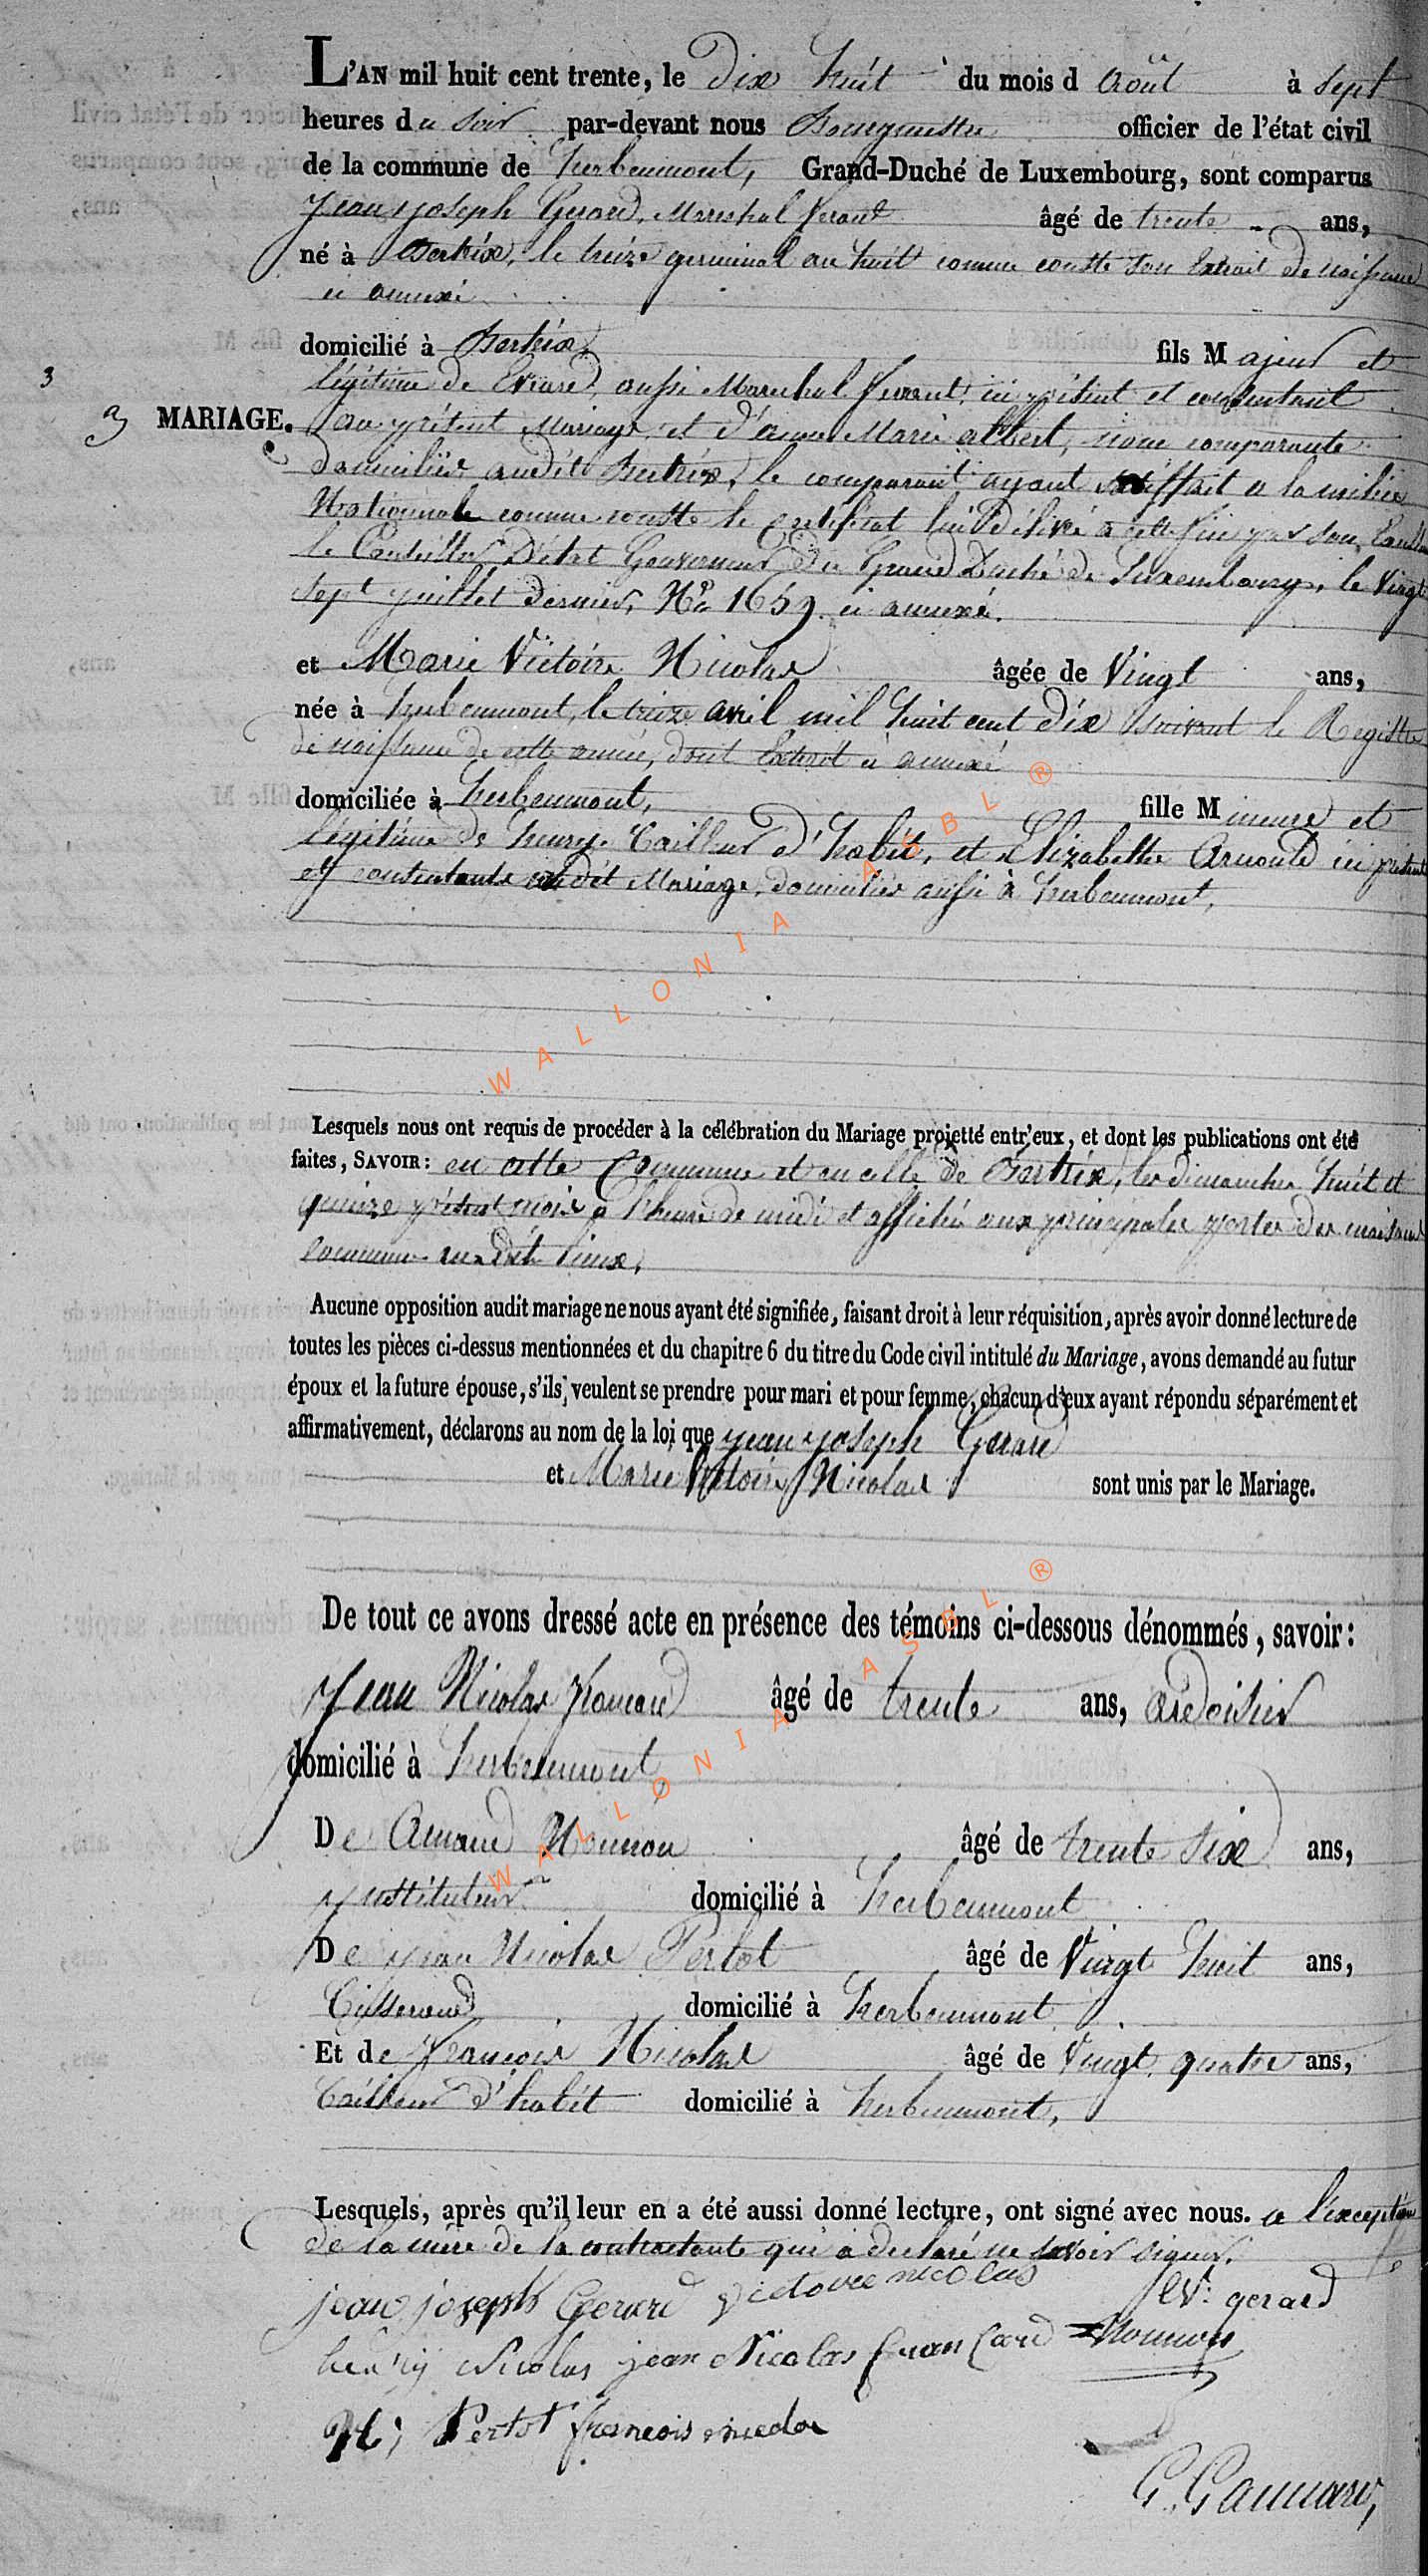 L'AN mil huit cent trente, le Dix huit du mois d août à sept
heures du soir par-devant nous Bourgmestre officier de l'état civil
de la commune de herbeumont, Grand-Duché de Luxembourg, sont comparus
Jean joseph Gerard, Marechal ferant âgé de trente ans,
né à Bertrix, le treize germinal an huit comme conste son Extrait de naissance
ci annexé
domicilié à Bertrix, fils Majeur et
3
légitime de Evrard, aussi Marechal ferrant, ici présent et consentant
3 MARIAGE.
au présent Mariage, et d'anne Marie albert, non comparante
domiciliés audit Bertrix, le comparant ayant satisffait a la milice
Nationale comme conste le certificat lui délivré a cette fin par son
le Conseiller D'état Gouverneur du Grand Duché de Luxembourg, le vingt
sept juillet dernier, No 1659. ci annexé.
et Marie Victoire Nicolas âgée de Vingt ans,
née à herbeumont, le treize avril mil huit cent dix suivant le Registre
de naissance de cette année, dont Extrait ci annexé
domiciliée à herbeumont, fille Mineure et
légitime de henry, Tailleur d'habit, et Elizabette Arnould ici présents
et consentants audit Mariage, domiciliés aussi à herbeumont.
Lesquels nous ont requis de procéder à la célébration du Mariage projetté entr'eux, et dont les publications ont été
faites, SAVOIR: en cette Commune et en celle de Bertrix, les dimanches huit et
quinze présent mois a l'heure de midi et affichés aux principales portes des maisons
communes desdits lieux,
Aucune opposition audit mariage ne nous ayant été signifiée, faisant droit à leur réquisition, après avoir donné lecture de
toutes les pièces ci-dessus mentionnées et du chapitre 6 du titre du Code civil intitulé du Mariage, avons demandé au futur
époux et la future épouse, s'ils, veulent se prendre pour mari et pour femme, chacun d'eux ayant répondu séparément et
affirmativement, déclarons au nom de la loi que jean joseph Gerard
et Marie Victoire Nicolas sont unis par le Mariage.
De tout ce avons dressé acte en présence des témoins ci-dessous dénommés, savoir:
Jean Nicolas francard âgé de trente ans, ardoisier
domicilié à herbeumont
De Arnaud Nounou âgé de trente six ans,
instituteur domicilié à herbeumont
De jean Nicolas Pertot âgé de Vingt huit ans,
Tisserand domicilié à herbeumont
Et de françois Nicolas âgé de Vingt quatre ans,
Tailleur d'habit domicilié à herbeumont,
Lesquels, après qu'il leur en a été aussi donné lecture, ont signé avec nous. a l'exception
de la mère de la contractante qui a declaré ne savoir signer.
jean joseph Gerard victoire nicolas EV: gerard
henrÿ Nicolas jean Nicolas francard Nounou
N; Pertot francois nicola
WALLONIA ASBL ®
WALLONIA ASBL ®